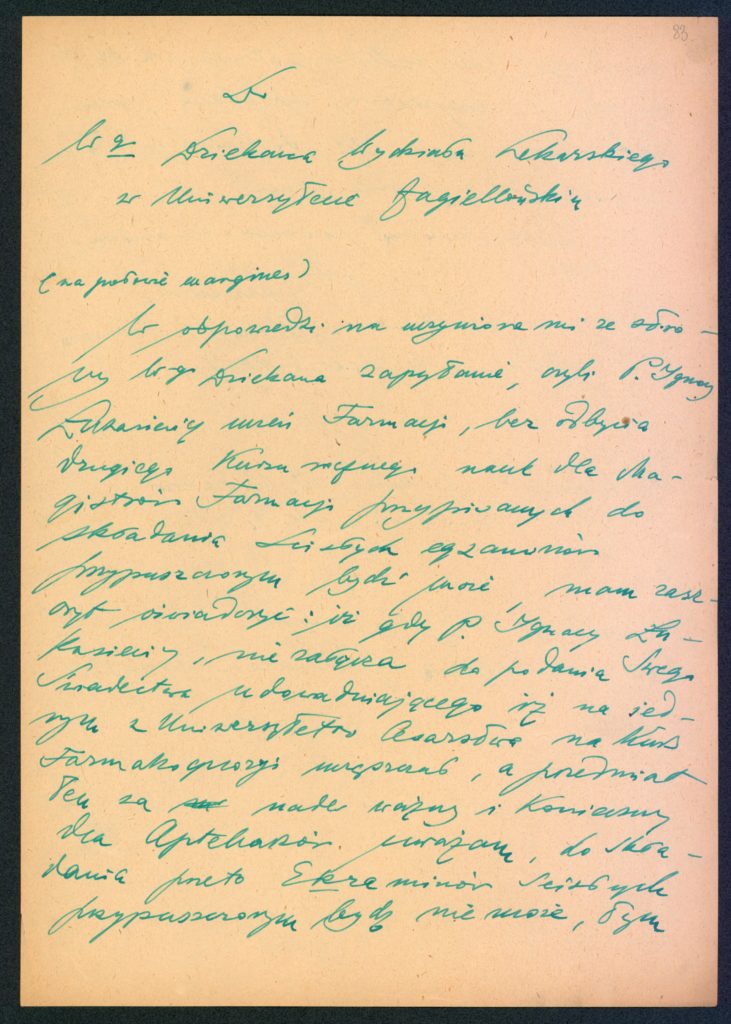 83
Do
Wgo Dziekana Wydziału Lekarskiego
w Uniwersytecie Jagiellońskim
(na połowie margines)
W odpowiedzi na uczynione mi ze stro-
ny Wgo Dziekana zapytanie, czyli P. Ignacy
Łukasiewicz uczeń Farmacji, bez odbycia
drugiego Kursu nauk dla Ma-
gistrów Farmacji przepisanych do
składania ścisłych egzaminów
przypuszczonym bydź może, mam zasz-
czyt oświadczyć: iż gdy P. Ignacy Łu-
kasiewicz, nie załącza do podania Swego
Świadectwa udowadniającego iż na jed-
nym z Uniwersytetów Cesarstwa na Kurs
Farmakognozji uczęszczał, a przedmiot
ten za nader ważny i Konieczny
dla Aptekarzów uważam, do skła-
dania przeto Ekzaminów ścisłych
przypuszczonym bydź nie może, tym